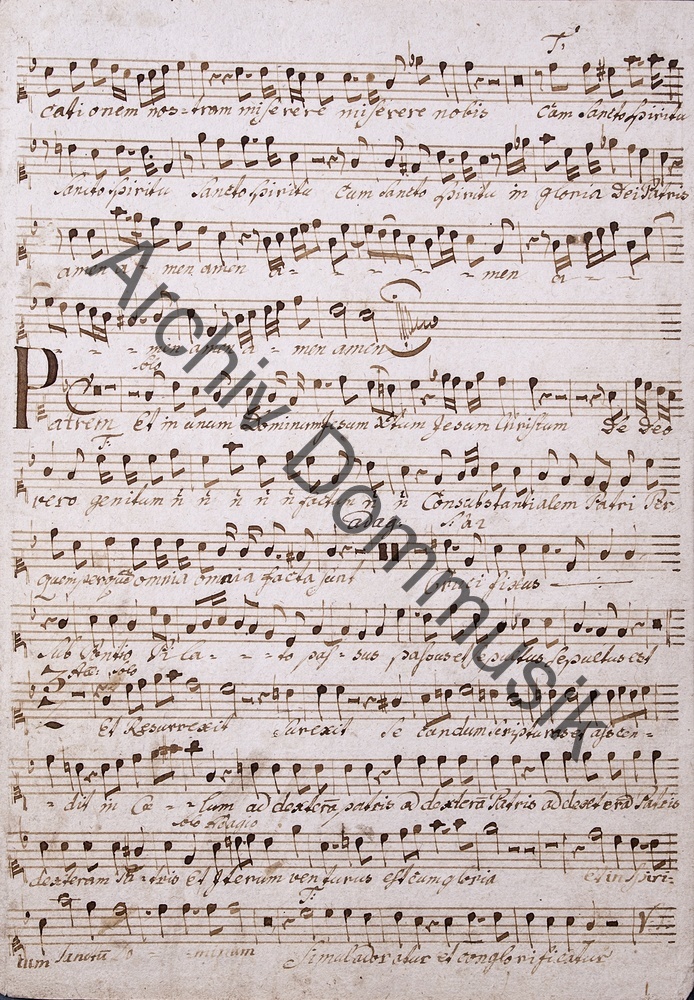 T.
cationem nos-tram miserere miserere nobis Cum Sancto Spiritu
Sancto Spiritu Sancto Spiritu Cum Sancto Spiritu in gloria Dei Patris
amen a - men amen a - - - - - men a - - -
- - - men amen a - men amen
Solo
Patrem Et in unum Dominum Jesum Xtum Jesum Christum De Deo
T.
vero genitum ñ ñ ñ ñ ñ factum ñ ñ Consubstantialem Patri Per
adag.
quem per quem omnia omnia facta sunt Cruci fixus
Sub Pontio Pi la - - - to pas - sus passus et sepultus sepultus est
solo
Et Resurrexit surexit Se cundum scripturas et ascen -
- dit in Cœ - - lum ad dexterã patris ad dexterã Patris ad dexterã Patris
solo Adagio
dexteram Pa - tris Et Iterum venturus est cum gloria et in Spiri -
T.
tum Sanctũ Do - - minum Simul adoratur et conglorificatur
Archiv Dommusik